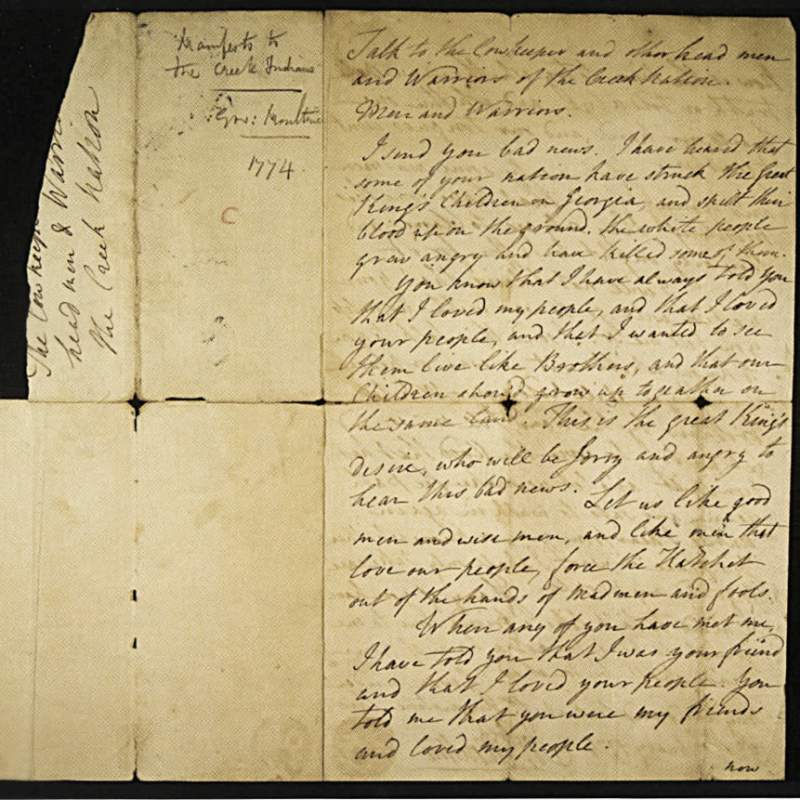 Manifesto to
the Creek Indians
Gov: Moultrie
1774.
C
The Cowkeeper
head men & Warri
the Creek Nation
Talk to the Cowkeeper and other head men
and Warriors of the Creek Nation.
Men and Warriors.
I send you bad news. I have heard that
some of your nation have struck the Great
King's Children in Georgia, and spilt their
blood upon the ground. The white people
grew angry and have killed some of them.
You know that I have always told you
that I loved my people, and that I loved
your people, and that I wanted to see
them live like Brothers, and that our
Children should grow up together on
the same land. This is the great King's
desire, who will be Sorry and angry to
hear this bad news. Let us like good
men and wise men, and like men that
love our people, force the Hatchet
out of the hands of madmen and fools.
When any of you have met me,
I have told you that I was your friend
and that I loved your people. You
told me that you were my friends
and loved my people.
now